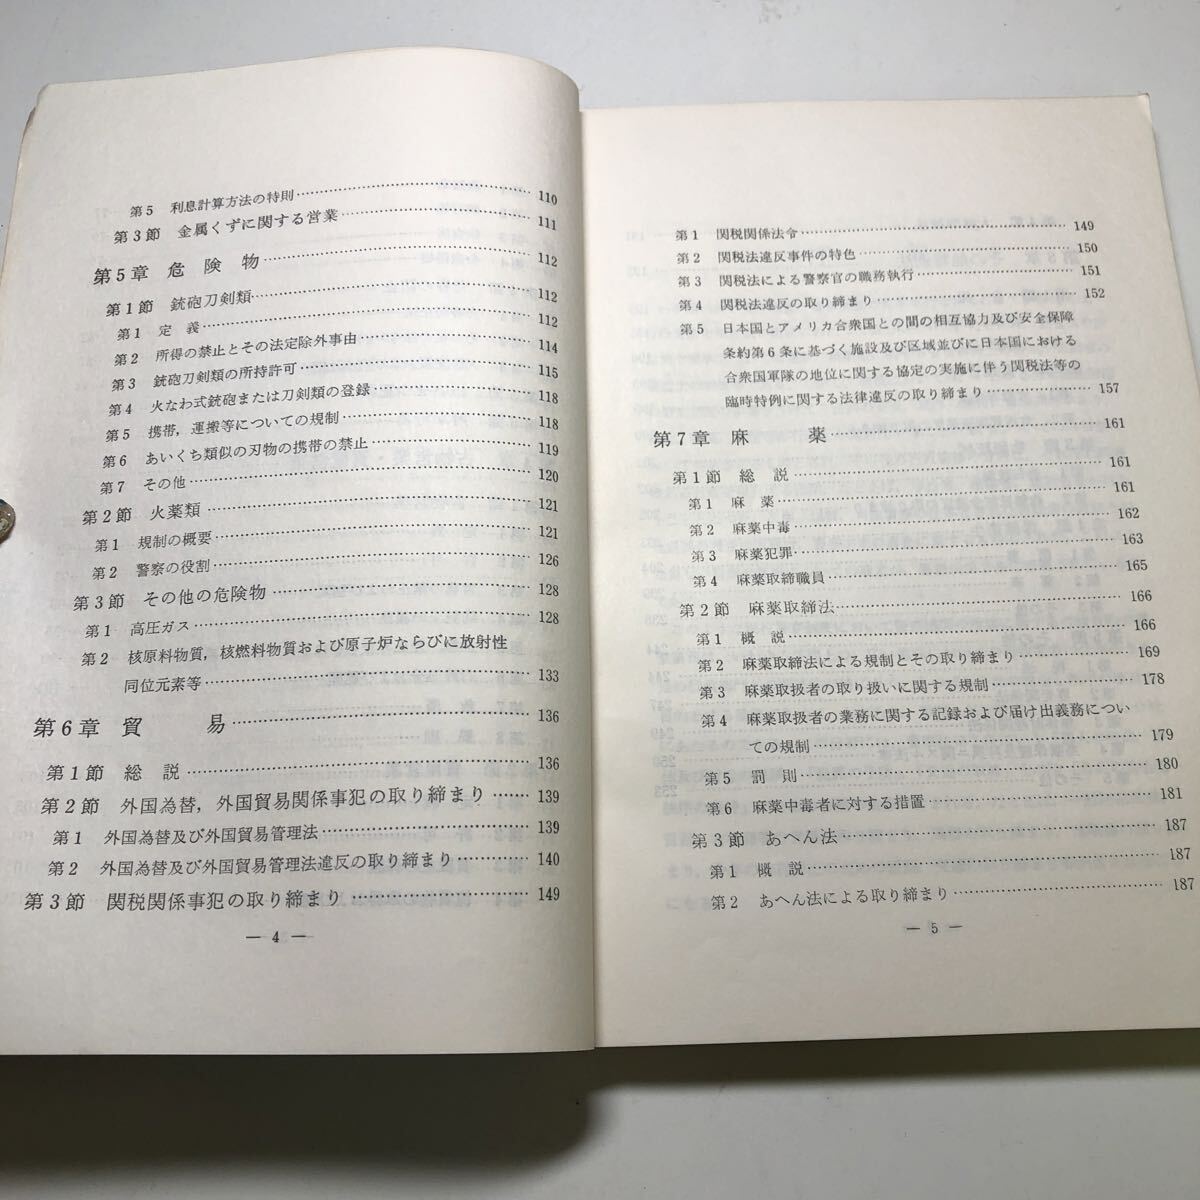 第5 利息計算方法の特則……………………110
第3節 金属くずに関する営業……………………111
第5章 危険物……………………112
第1節 銃砲刀剣類……………………112
第1 定義……………………112
第2 所得の禁止とその法定除外事由……………………114
第3 銃砲刀剣類の所持許可……………………115
第4 火なわ式銃砲または刀剣類の登録……………………118
第5 携帯，運搬等についての規制……………………118
第6 あいくち類似の刃物の携帯の禁止……………………119
第7 その他……………………120
第2節 火薬類……………………121
第1 規制の概要……………………121
第2 警察の役割……………………126
第3節 その他の危険物……………………128
第1 高圧ガス……………………128
第2 核原料物質，核燃料物質および原子炉ならびに放射性
同位元素等……………………133
第6章 貿易……………………136
第1節 総説……………………136
第2節 外国為替，外国貿易関係事犯の取り締まり……………………139
第1 外国為替及び外国貿易管理法……………………139
第2 外国為替及び外国貿易管理法違反の取り締まり……………………140
第3節 関税関係事犯の取り締まり……………………149
— 4 —
第1 関税関係法令……………………149
第2 関税法違反事件の特色……………………150
第3 関税法による警察官の職務執行……………………151
第4 関税法違反の取り締まり……………………152
第5 日本国とアメリカ合衆国との間の相互協力及び安全保障
条約第6条に基づく施設及び区域並びに日本国における
合衆国軍隊の地位に関する協定の実施に伴う関税法等の
臨時特例に関する法律違反の取り締まり……………………157
第7章 麻薬……………………161
第1節 総説……………………161
第1 麻薬……………………161
第2 麻薬中毒……………………162
第3 麻薬犯罪……………………163
第4 麻薬取締職員……………………165
第2節 麻薬取締法……………………166
第1 概説……………………166
第2 麻薬取締法による規制とその取り締まり……………………169
第3 麻薬取扱者の取り扱いに関する規制……………………178
第4 麻薬取扱者の業務に関する記録および届け出義務につい
ての規制……………………179
第5 罰則……………………180
第6 麻薬中毒者に対する措置……………………181
第3節 あへん法……………………187
第1 概説……………………187
第2 あへん法による取り締まり……………………187
— 5 —